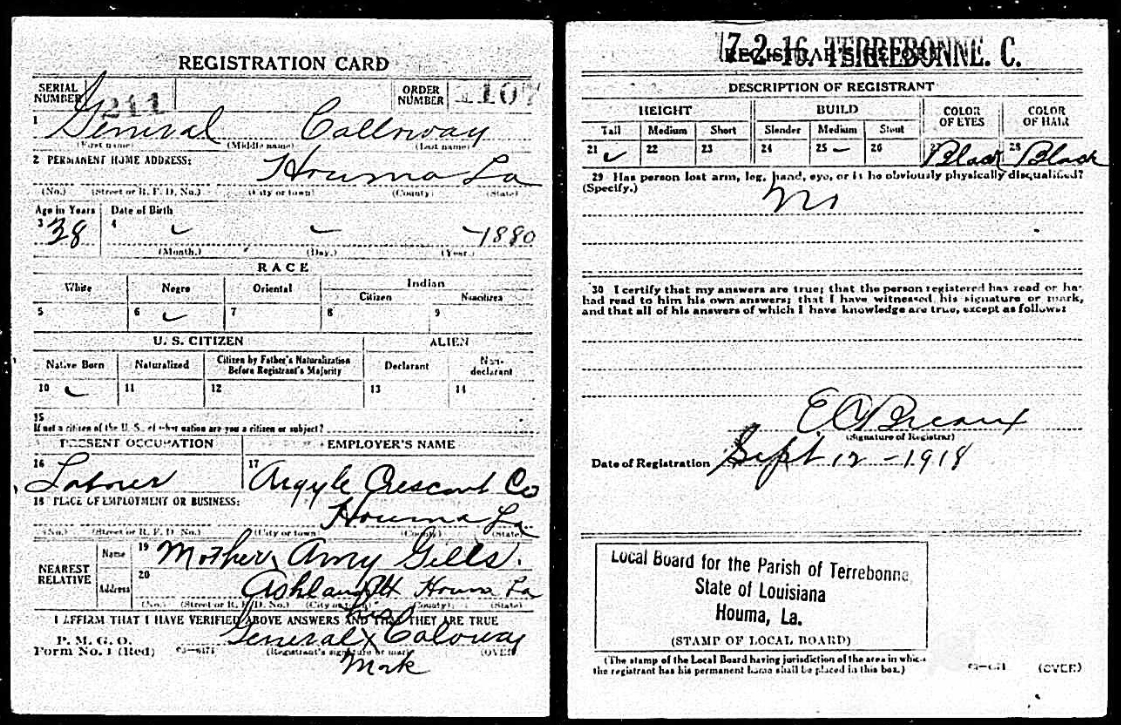 REGISTRATION CARD
SERIAL NUMBER 211 ORDER NUMBER 1107
1 General Calloway
(First name) (Middle name) (Last name)
2 PERMANENT HOME ADDRESS:
Houma La
(No.) (Street or R. F. D. No.) (City or town) (County) (State)
Age in Years Date of Birth
3 38 4 1880
(Month.) (Day.) (Year.)
RACE
White Negro Oriental Indian
Citizen Noncitizen
5 6 ✓ 7 8 9
U. S. CITIZEN ALIEN
Native Born Naturalized Citizen by Father's Naturalization Before Registrant's Majority Declarant Non-declarant
10 ✓ 11 12 13 14
15
If not a citizen of the U. S., of what nation are you a citizen or subject?
PRESENT OCCUPATION EMPLOYER'S NAME
16 Laborer 17 Argyle Crescent Co
18 PLACE OF EMPLOYMENT OR BUSINESS:
Houma La
(No.) (Street or R. F. D. No.) (City or town) (County) (State)
NEAREST RELATIVE
Name 19 Mother Amy Gells.
Address 20 Ashland Houma La
(No.) (Street or R. F. D. No.) (City or town) (County) (State)
I AFFIRM THAT I HAVE VERIFIED ABOVE ANSWERS AND THAT THEY ARE TRUE
his
P. M. G. O. General x Caloway
Form No. 1 (Red) 03-6171 (Registrant's signature or mark) (OVER)
Mark
17-2-16 TERREBONNE. C.
REGISTRAR'S REPORT
DESCRIPTION OF REGISTRANT
HEIGHT BUILD COLOR OF EYES COLOR OF HAIR
Tall Medium Short Slender Medium Stout
21 ✓ 22 23 24 25 - 26 27 Black 28 Black
29 Has person lost arm, leg, hand, eye, or is he obviously physically disqualified?
(Specify.) No
30 I certify that my answers are true; that the person registered has read or has
had read to him his own answers; that I have witnessed his signature or mark,
and that all of his answers of which I have knowledge are true, except as follows:
E A Breaux
(Signature of Registrar)
Date of Registration Sept 12 - 1918
Local Board for the Parish of Terrebonne,
State of Louisiana
Houma, La.
(STAMP OF LOCAL BOARD)
(The stamp of the Local Board having jurisdiction of the area in which
the registrant has his permanent home shall be placed in this box.)
03-6171 (OVER)